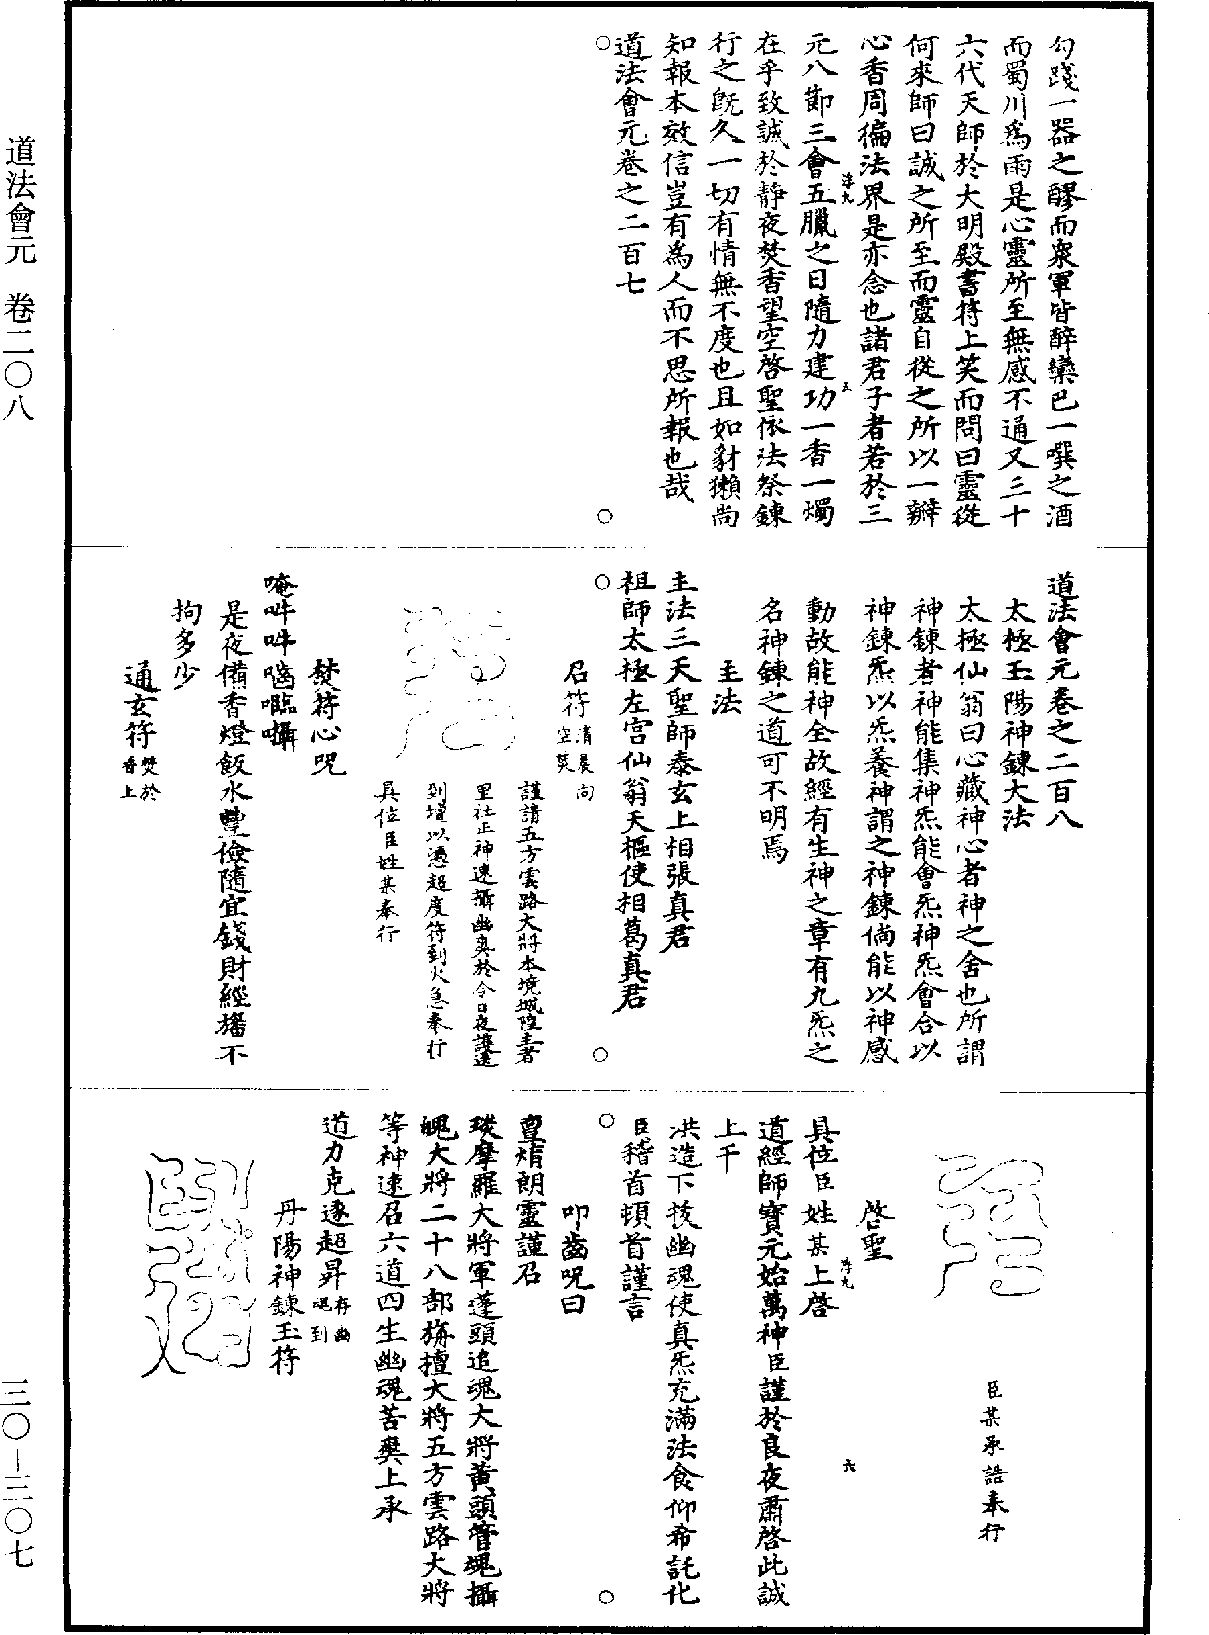 勾踐一器之醪而衆軍皆醉欒巴一噀之酒
而蜀川爲雨是心靈所至無感不通又三十
六代天師於大明殿書符上笑而問曰靈從
何來師曰誠之所至而靈自從之所以一瓣
心香周徧法界是亦念也諸君子者若於三
五
元八節三會五臘之日隨力建功一香一燭
在乎致誠於静夜焚香望空啓聖依法祭鍊
行之既久一切有情無不度也且如豺獺尚
知報本效信豈有爲人而不思所報也哉
道法會元卷之二百七
道法會元卷之二百八
太極玉陽神鍊大法
太極仙翁曰心藏神心者神之舍也所謂
神鍊者神能集神炁能會炁神炁會合以
神鍊炁以炁養神謂之神鍊倘能以神感
動故能神全故經有生神之章有九炁之
名神鍊之道可不明焉
主法
主法三天聖師泰玄上相張真君
祖師太極左宫仙翁天樞使相葛真君
召符清晨向空焚
謹請五方雲路大將本境城隍主者
里社正神速攝幽爽於今日夜護送
到壇以憑超度符到火急奉行
具位臣姓某奉行
焚符心咒
唵吽吽囐𡄸囁
是夜備香燈飯水豐儉隨宜錢財經旛不
拘多少
通玄符焚於香上
臣某承誥奉行
啓聖
六
具位臣姓某上啓
道經師寶元始萬神臣謹於良夜肅啓此誠
上干
洪造下拔幽魂使真炁充滿法食仰希託化
臣稽首頓首謹言
叩齒咒曰
亶焴朗靈謹召
琰摩羅大將軍蓬頭追魂大將黄頭管魂攝
魄大將二十八部旃檀大將五方雲路大將
等神速召六道四生幽魂苦爽上承
道力克遂超昇存幽魂到
丹陽神鍊玉符
道法會元　卷二〇八
三〇—三〇七